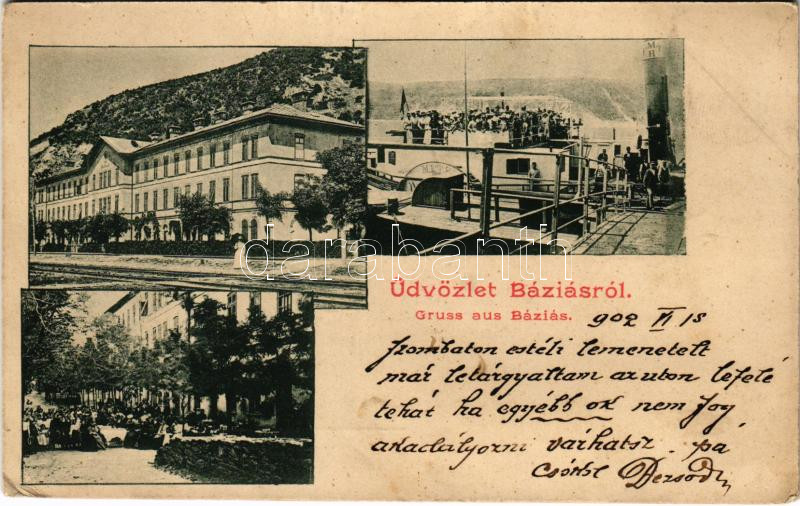 M
H
darabanth
Üdvözlet Báziásról.
Gruss aus Báziás.
902 VI 18
Szombaton estéli lemenetelt
már letárgyaltam az uton lefelé
tehát ha egyébb ok nem fog
akadályozni várhatsz. pá
Dezsőd